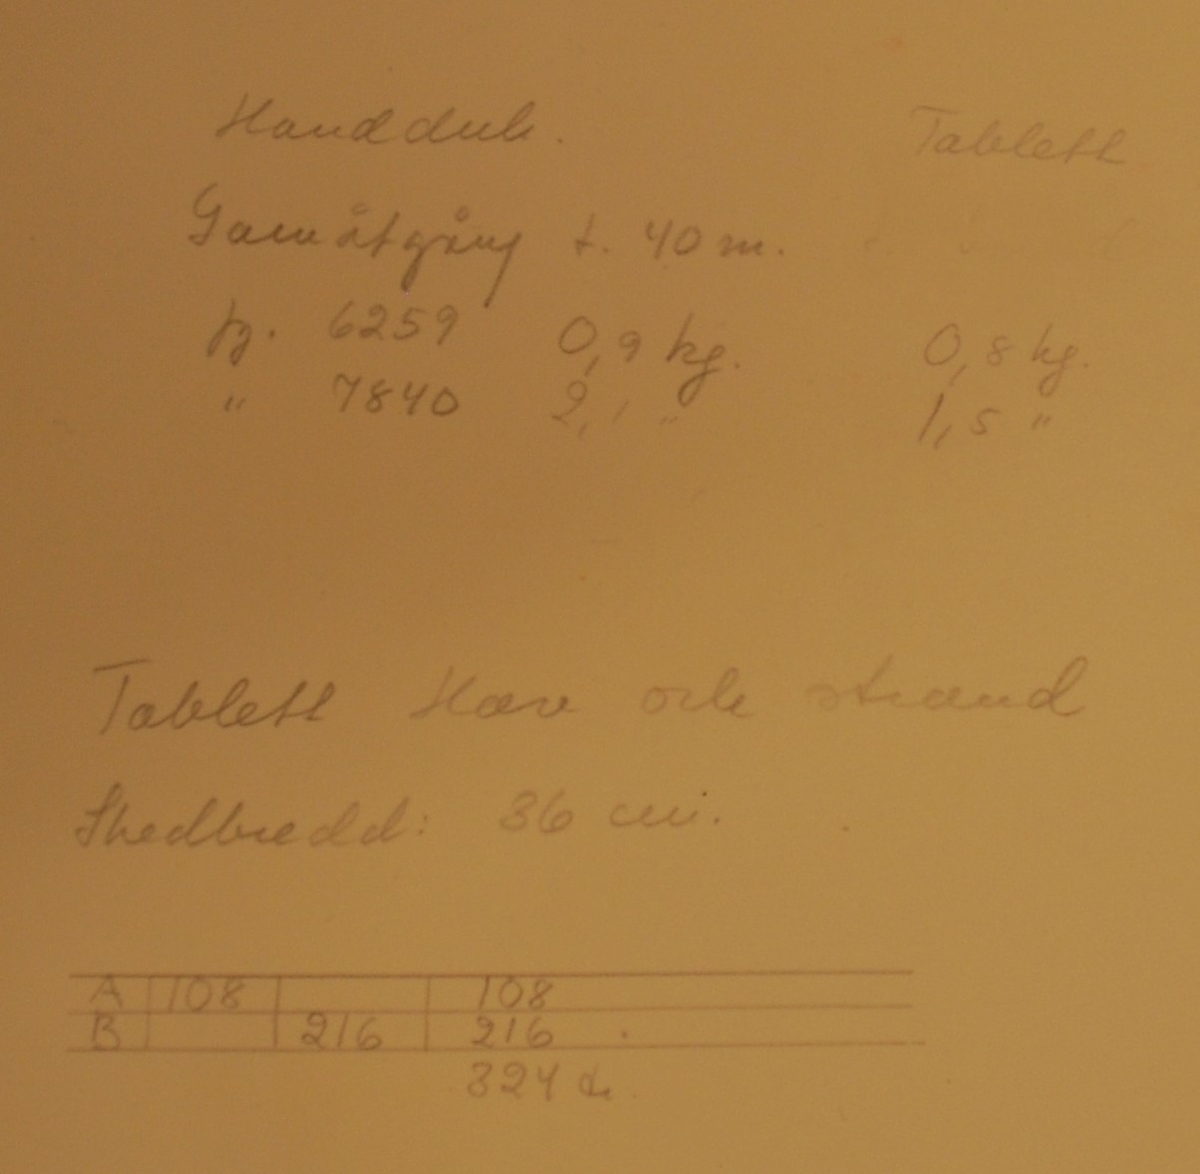 Handduk. Tablett
Garnåtgång t. 40 m.
fg. 6259 0,9 kg. 0,8 kg.
" 7840 2,1 " 1,5 "
Tablett Hav och strand
Skedbredd: 36 cm.
A 108 108
B 216 216
324 tr.